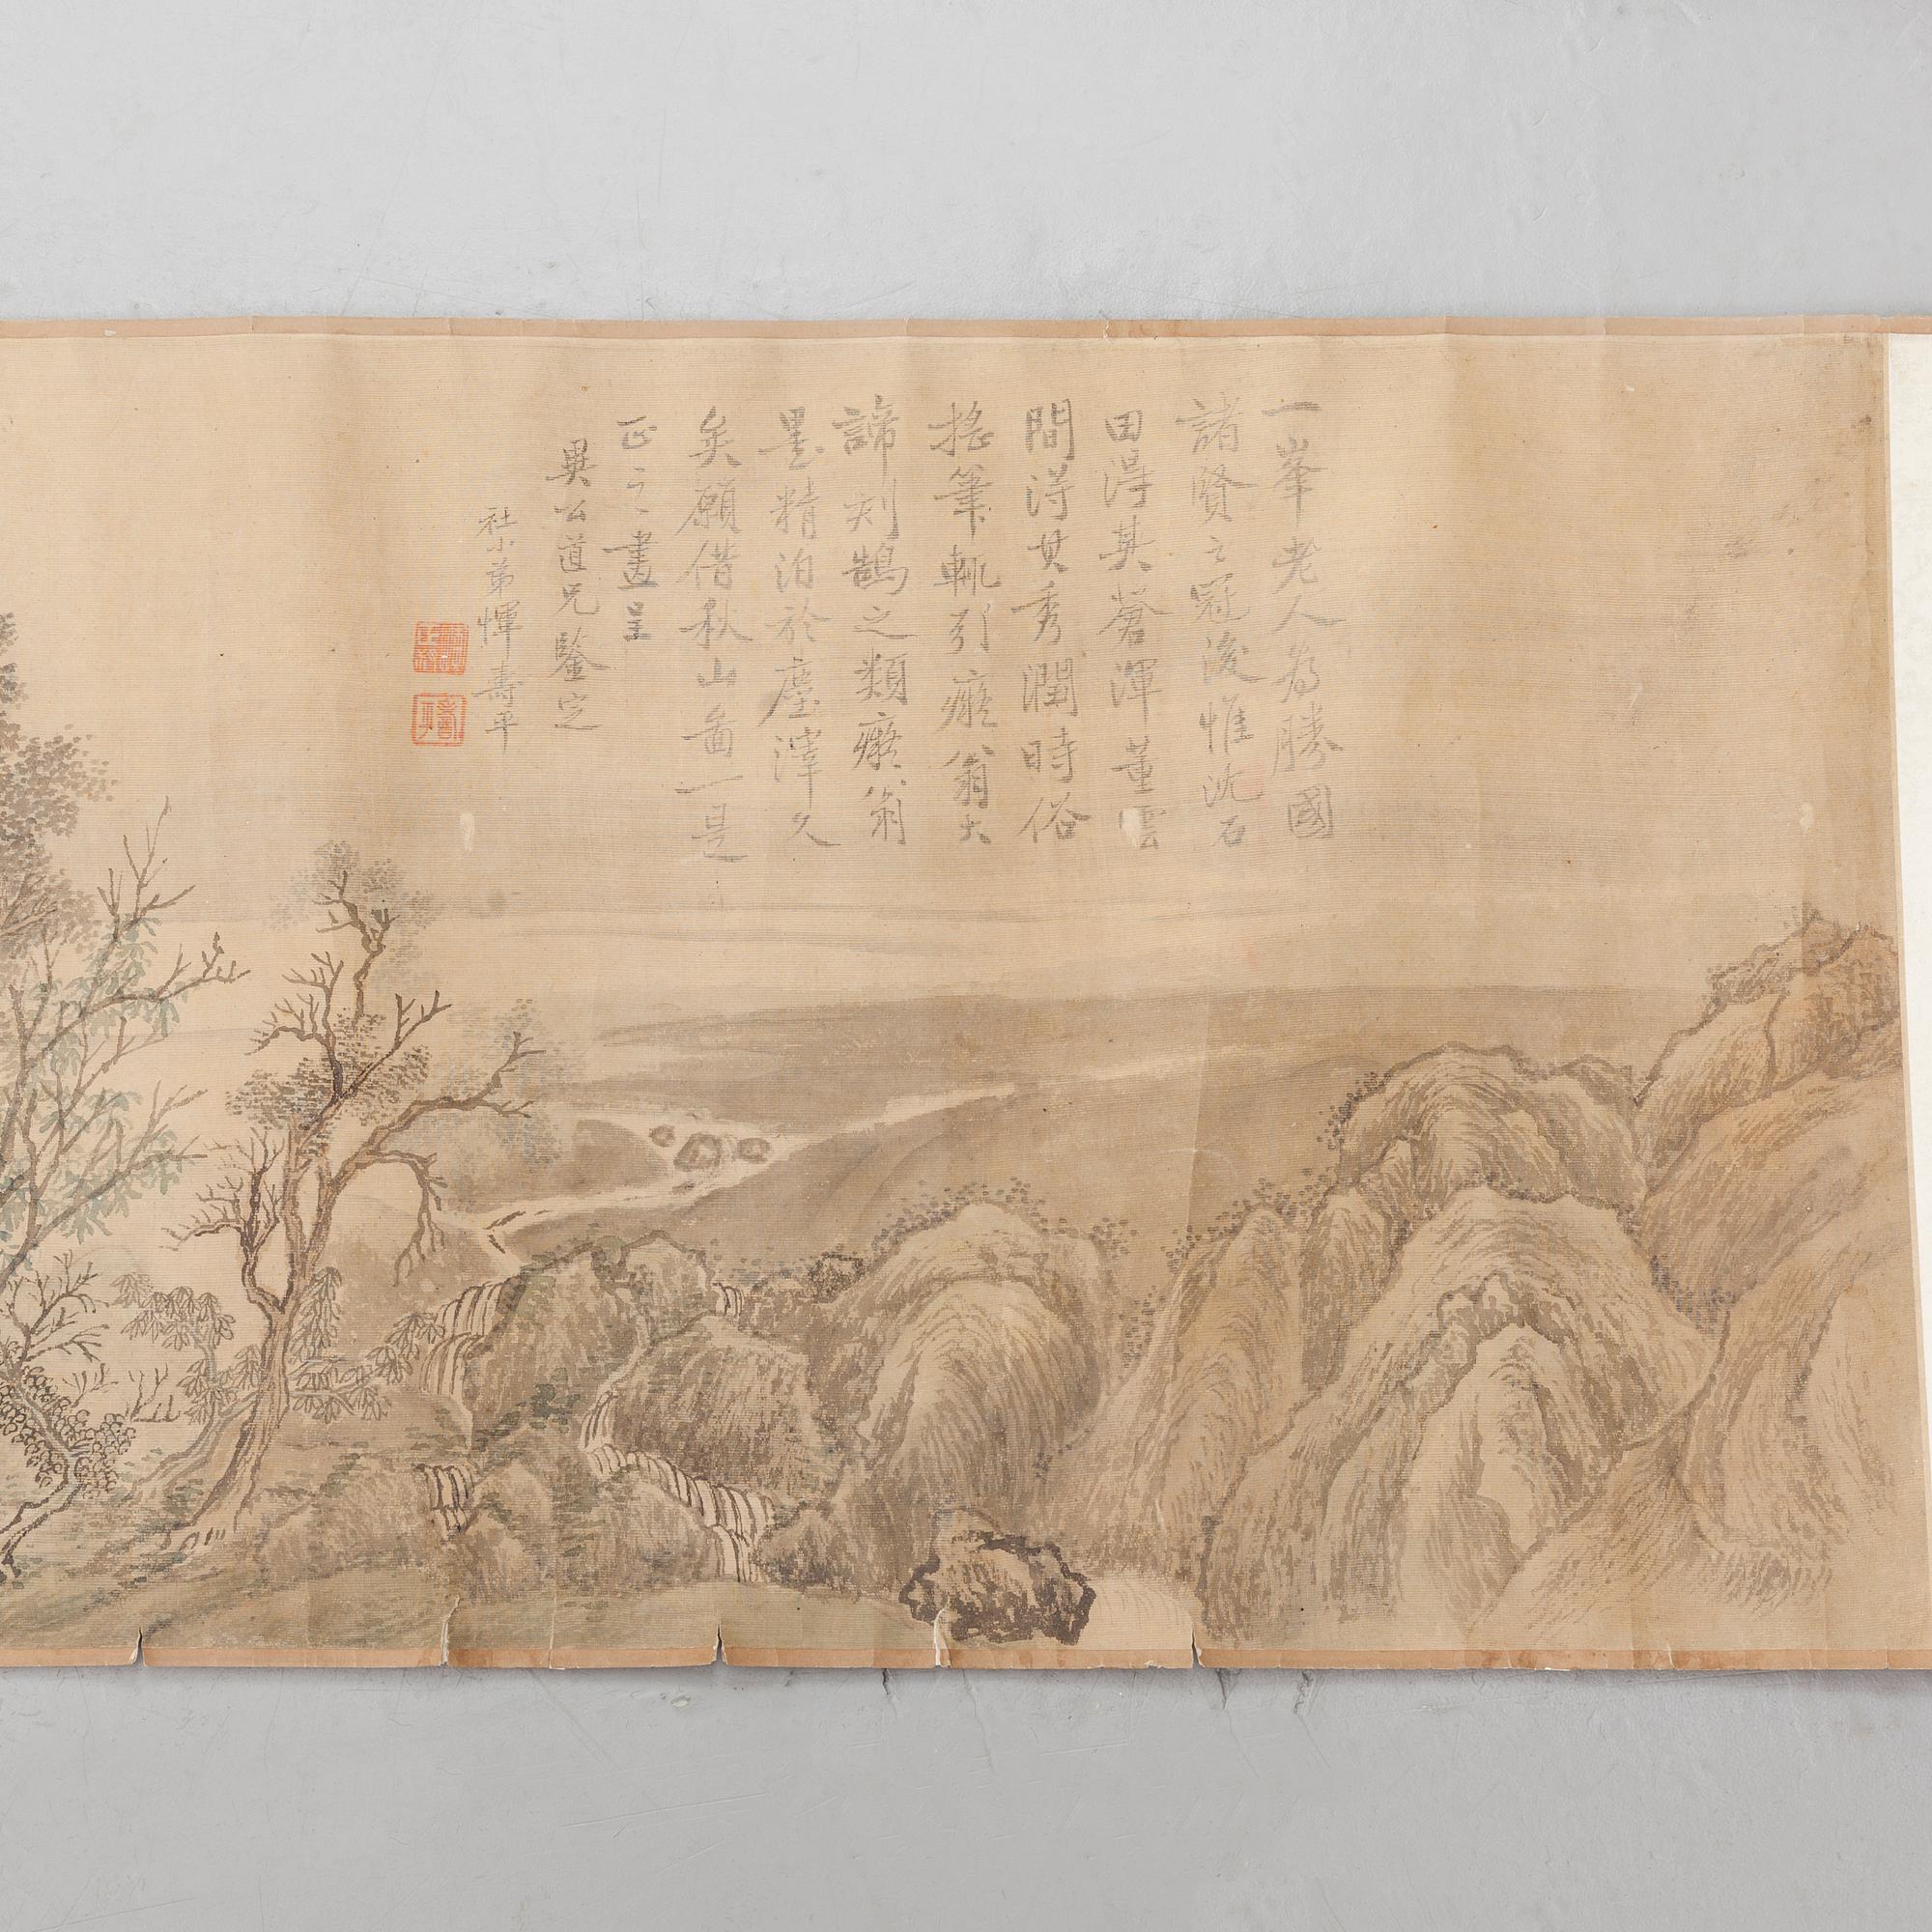 一峯老人為勝國
諸賢之冠後惟沈石
田得其蒼渾董雲
間得其秀潤時俗
搖筆輒引癡翁大
諦刻鵠之類癡翁
墨精泊於塵滓久
矣願借秋山圖一是
正之畫呈
異公道兄鑒定
社小弟惲壽平
壽平